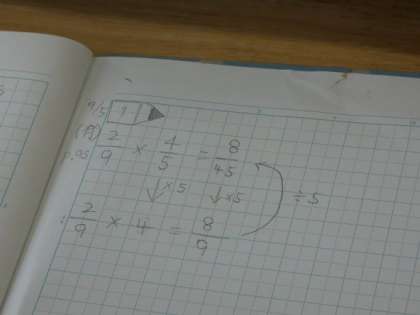 9/5 1
(例) 2/9 × 4/5 = 8/45
p.95
↓×5 ↓×5 ÷5
2/9 × 4 = 8/9